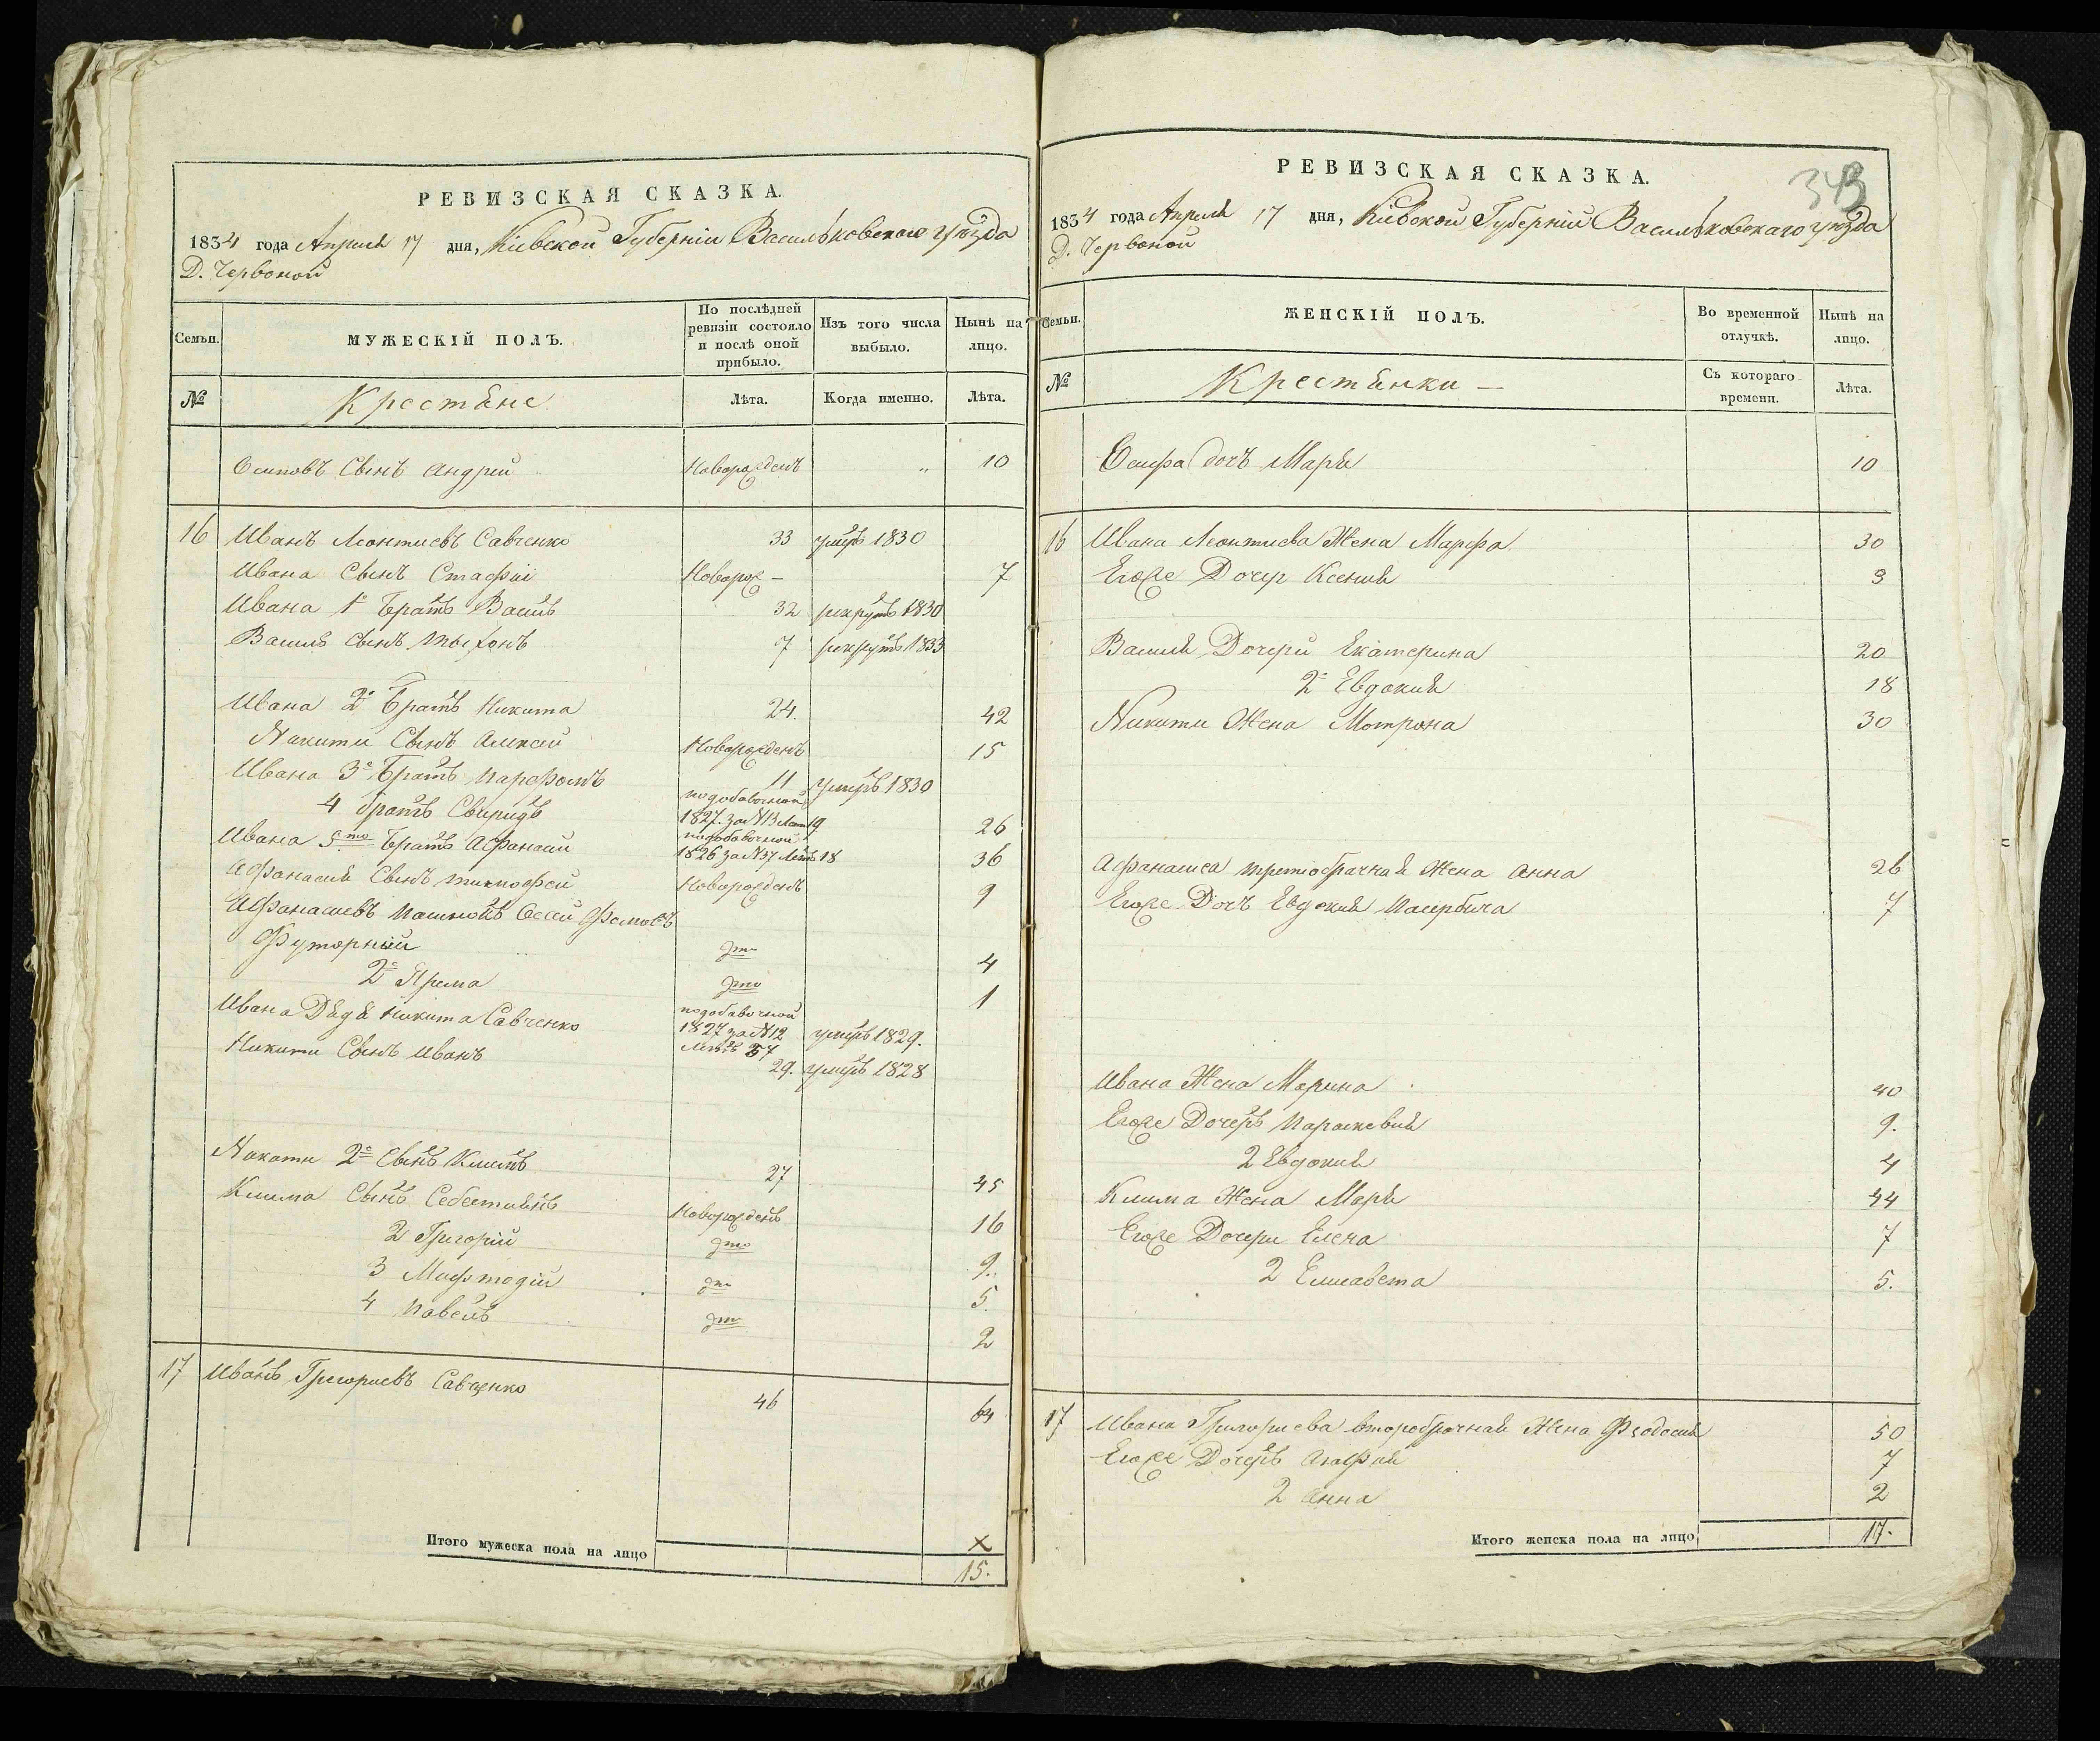 РЕВИЗСКАЯ СКАЗКА.
1834 года Апреля 17 дня, Кіевской Губерніи Васильковскаго уѣзда
Д. Червоной
Семьи.
МУЖЕСКІЙ ПОЛЪ.
По послѣдней ревизіи состояло и послѣ оной прибыло.
Изъ того числа выбыло.
Нынѣ на лицо.
№
Крестяне.
Лѣта.
Когда именно.
Лѣта.
Осиповъ Сынъ Андрей Новорожденъ „ 10
16 Иванъ Леонтиевъ Савченко 33 умеръ 1830
Ивана Сынъ Стафій Новорож— 7
Ивана 1й Братъ Василь 32 рекрутъ 1830
Василя Сынъ Тыхонъ 7 рекрутъ 1833
Ивана 2й Братъ Никита 24. 42
Никити Сынъ Алексей Новорожденъ 15
Ивана 3й Братъ Парфомъ 11 умеръ 1830
4 братъ Свиридъ подобавочной 1827. за №13 Лет 19 26
Ивана 5то Братъ Афанасий подобавочной 1826 за №37 Летъ 18 36
Афанасия Сынъ тимофей Новорожденъ 9
Афанасиевъ Пасинокъ
Футорний дто 4
2й Ярема дто 1
Ивана Дядя Никита Савченко подобавочной 1827 за №12 Летъ 57 умеръ 1829.
Никити Сынъ Иванъ 29. умеръ 1828
Никити 2й Сынъ Климъ 27 45
Клима Сынъ Себестиянъ Новорожденъ 16
2 Григорій дто 9.
3 Мифтодій дто 5.
4 Павелъ дто 2
17 Иванъ Григориевъ Савченко 46 64
Итого мужеска пола на лицо 15.
РЕВИЗСКАЯ СКАЗКА.
1834 года Апреля 17 дня, Кіевской Губерній Васильковскаго уѣзда
Д. Червоной
Семьи.
ЖЕНСКІЙ ПОЛЪ.
Во временной отлучкѣ.
Нынѣ на лицо.
№
Крестянки —
Съ котораго времени.
Лѣта.
Осифа дочъ Маря 10
16 Ивана Леонтиева Жена Марфа 30
Егоже Дочер Ксения 3
Василя Дочери Екатерина 20
2я Евдокия 18
Никити Жена Мотрона 30
Афанасиеа третиобрачная Жена Анна 26
Егоже Дочъ Евдокия Пасербица 7
Ивана Жена Марина 40
Егоже Дочеръ Параскевия 9.
2 Евдокия 4
Клима Жена Маря 44
Егоже Дочери Елена 7
2 Елисавета 5.
17 Ивана Григориева второбрачная Жена Феодосия 50
Егоже Дочеръ Агафия 7
2 Анна 2
Итого женска пола на лицо 17.